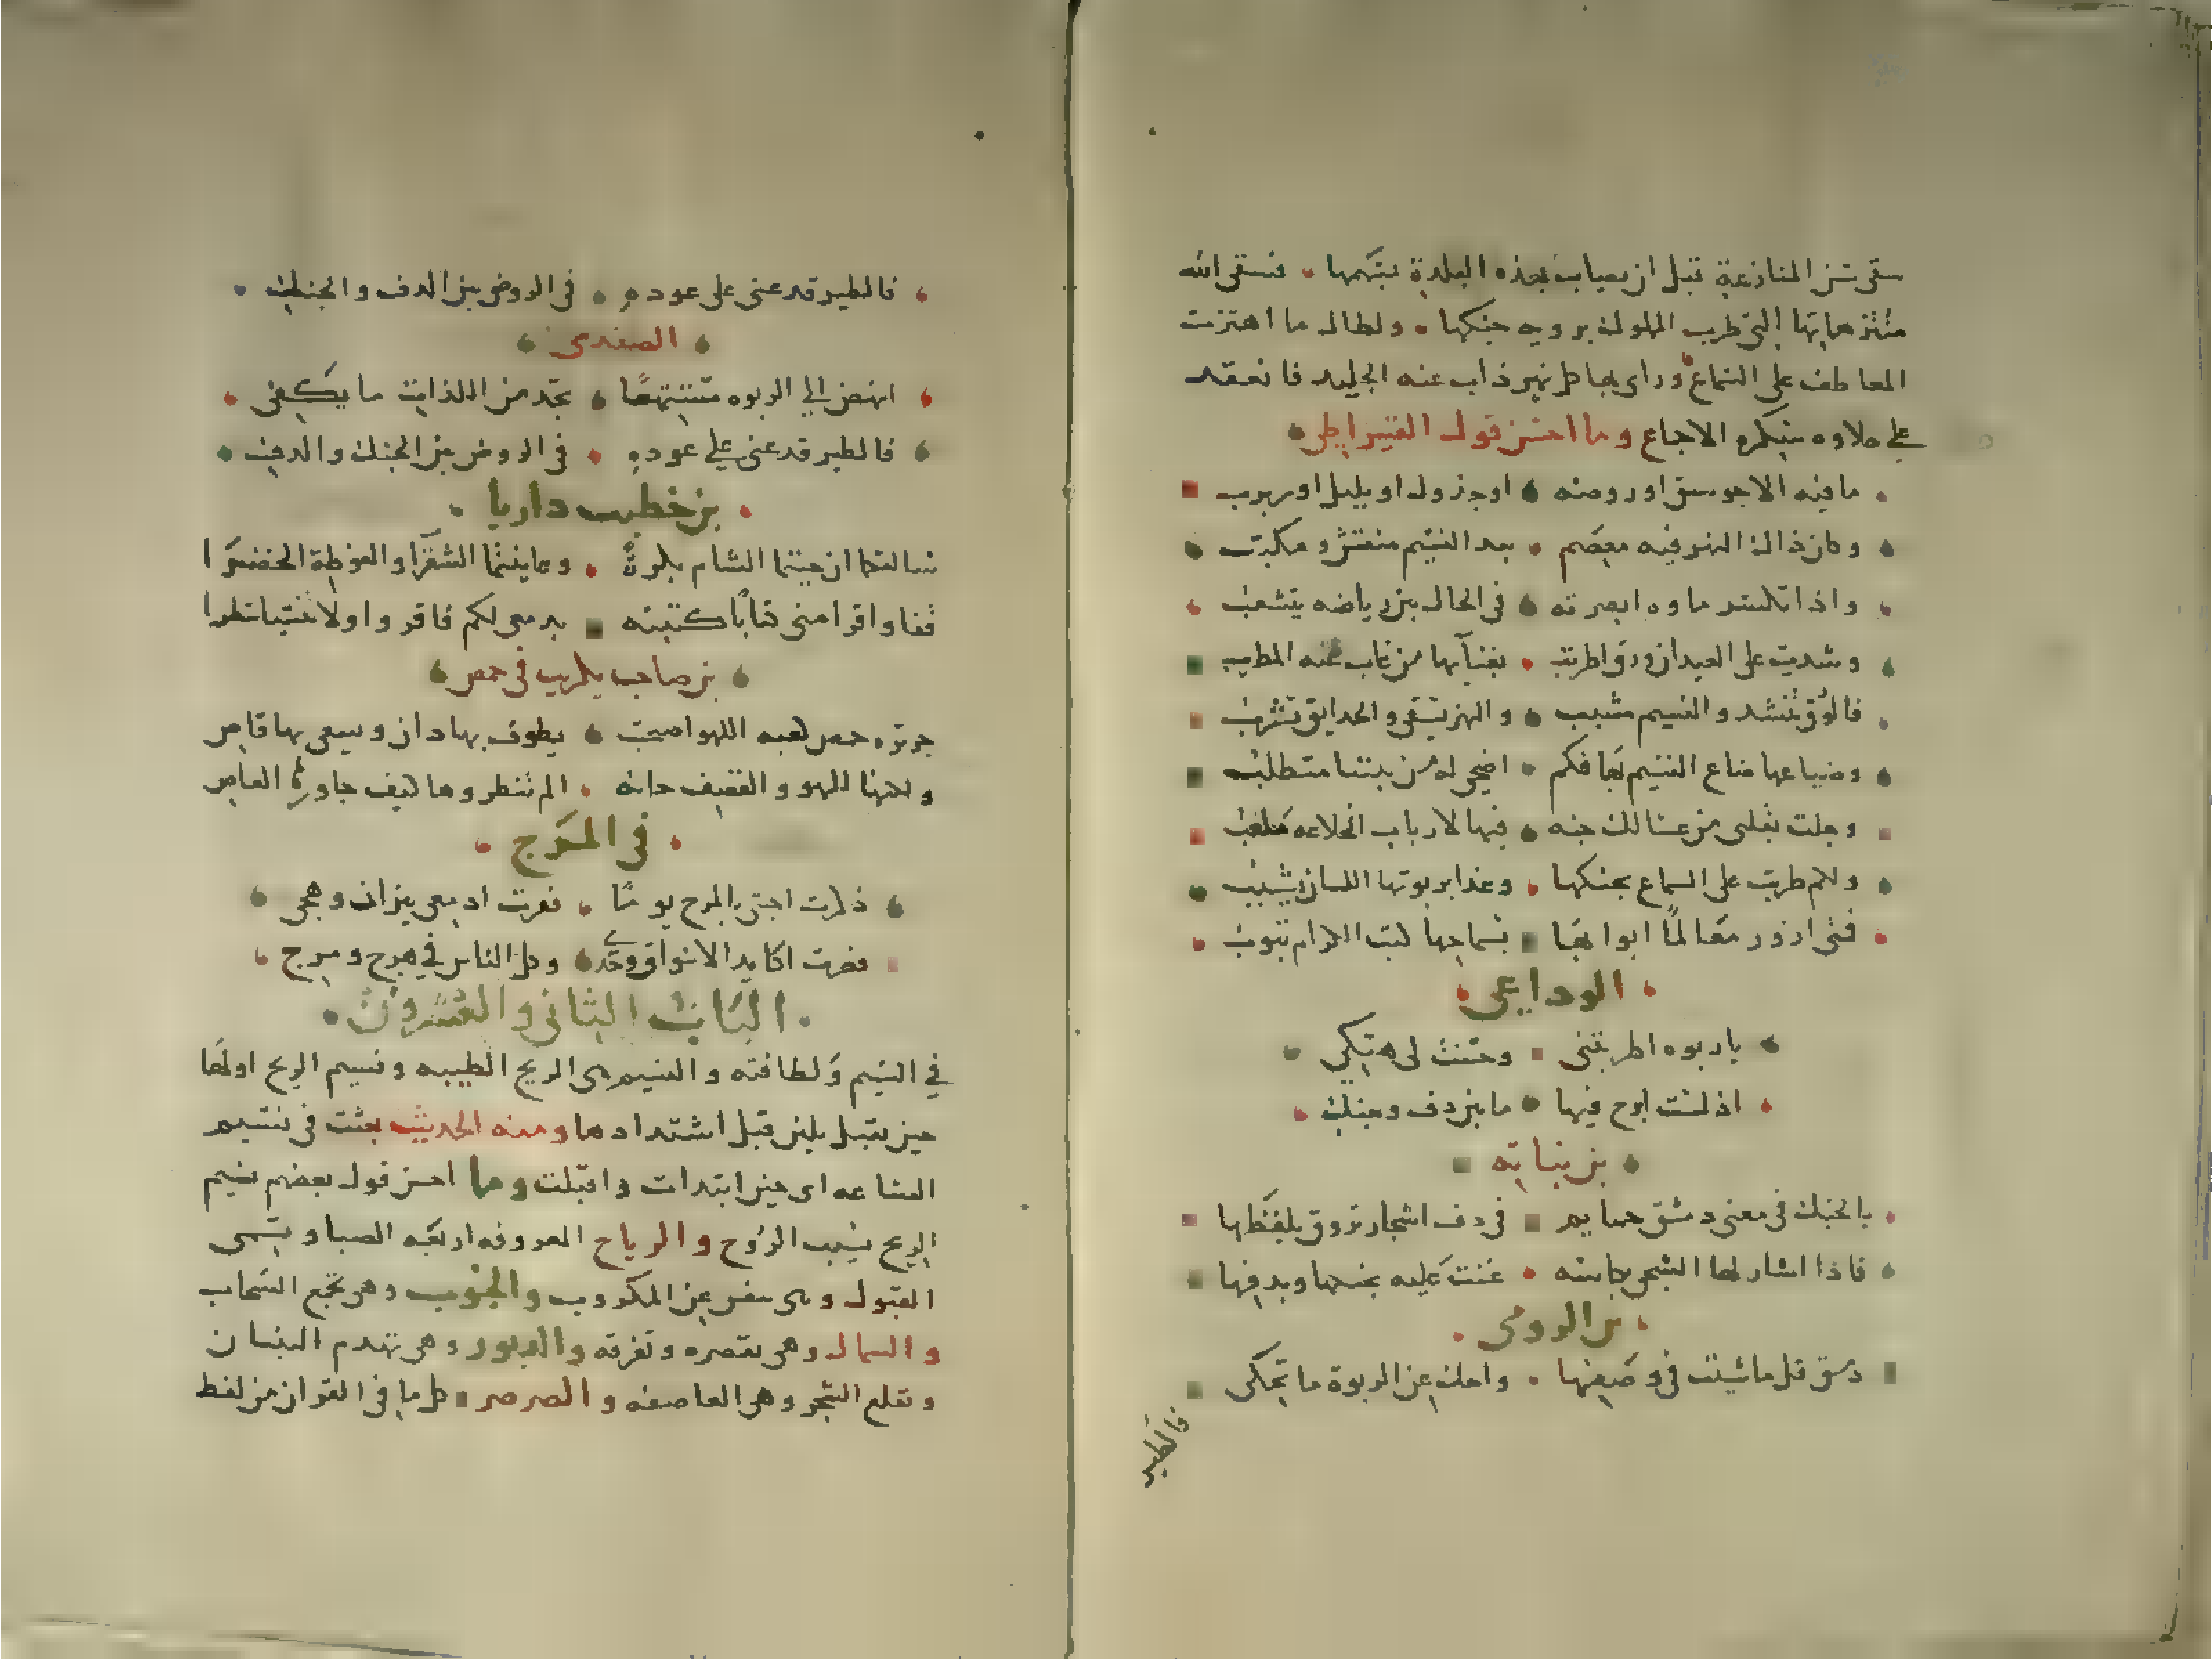 سقى شن المنازعة قبل ان يصاب بهذه البلدة بتهمها فسقى الله
منتزهاتها التي طرب الملوك بروحه جنكها ولطال ما اهتزت
المعاطف على السماع وراى بها كل نهر ذاب عنه الجليد فانعقد
على حلاوه سكره الاجماع وما احسن قول القيراطي
ما فيه الا جوسق او روضه او جدول او بلبل او ربرب
وكان ذاك النهر فيه معصم بيد النسيم منقش ومكتب
واذا تكسر ماوه ابصرته في الحال بين رياضه يتشعب
وشدت على العيدان ورق اطربت بغنآيها من غاب عنه المطرب
فالورق تنشد والنسيم مشبب والنهر يسقي والحدايق تشرب
وضياعها ضاع النسيم بها فكم اضحى له من بيننا متطلب
وحلت بقلبي من عسالك جنه فيها لارباب الخلاعه ملعب
ولكم طربت على السماع بجنكها وغدا بربوتها اللسان يشبب
فمتى ازور معالما ابوابها بسماحها كتب الكرام تبوب
الوداعي
ياربوه اطربتني وحسنت لي هتكي
اذ لست ابرح فيها ما بين دف وجنك
بن نباته
يا لجنك في مغنى دمشق حمايم في دف اشجار تروق بلفظها
فاذا اشار لها الشجي بكاسه غنت عليه بجنكها وبدفها
بن الرومي
دمشق قل ما شيت في وصفها واحك عن الربوة ما تحكى
فالطير
فالطير قد غنى على عوده في الروض بين الدف والجنك
الصفدي
انهض الى الربوه متنتهعا تجد من اللذات ما يكفي
فالطير قد غنى على عوده في الروض بين الجنك والدف
بن خطيب داريا
سالتكما ان جيتما الشام بكرة وعاينتما الشقرا والغوطة الخضرا
قفا واقرا مني كتابا كتبته بدمعي لكم فاقروا ولا تنسيا سطرا
بن صاحب تكريت في حمص
جزيره حمص كعبه اللهو اصبحت يطوف بها دان ويسعى بها قاصر
ولكنها للهو والقصف حانه الم تنظروها كيف جاورها العاصر
في المرج
ذكرت احبتي بالمرج يوما فقرت ادمعي نيران وهجي
فصرت اكابد الاشواق وحدي وكل الناس في هرج ومرج
الباب الثاني والعشرون
في النسيم ولطافته والنسيم هي الريح الطيبه ونسيم الريح اولها
حين تقبل بلين قبل اشتدادها ومنه الحديث بعثت في نسيم
الساعه اى حين ابتدات واقبلت وما احسن قول بعضهم نسيم
الريح نسيب الروح والرياح المعروفه اربعه الصبا وتسمى
القبول وهي تنفس عن المكروب والجنوب وهي تجمع السحاب
والشمال وهي تعصره وتفرقه والدبور وهي تهدم البنيان
وتقلع الشجر وهي العاصفه والصرصر كل ما في القران من لفظ